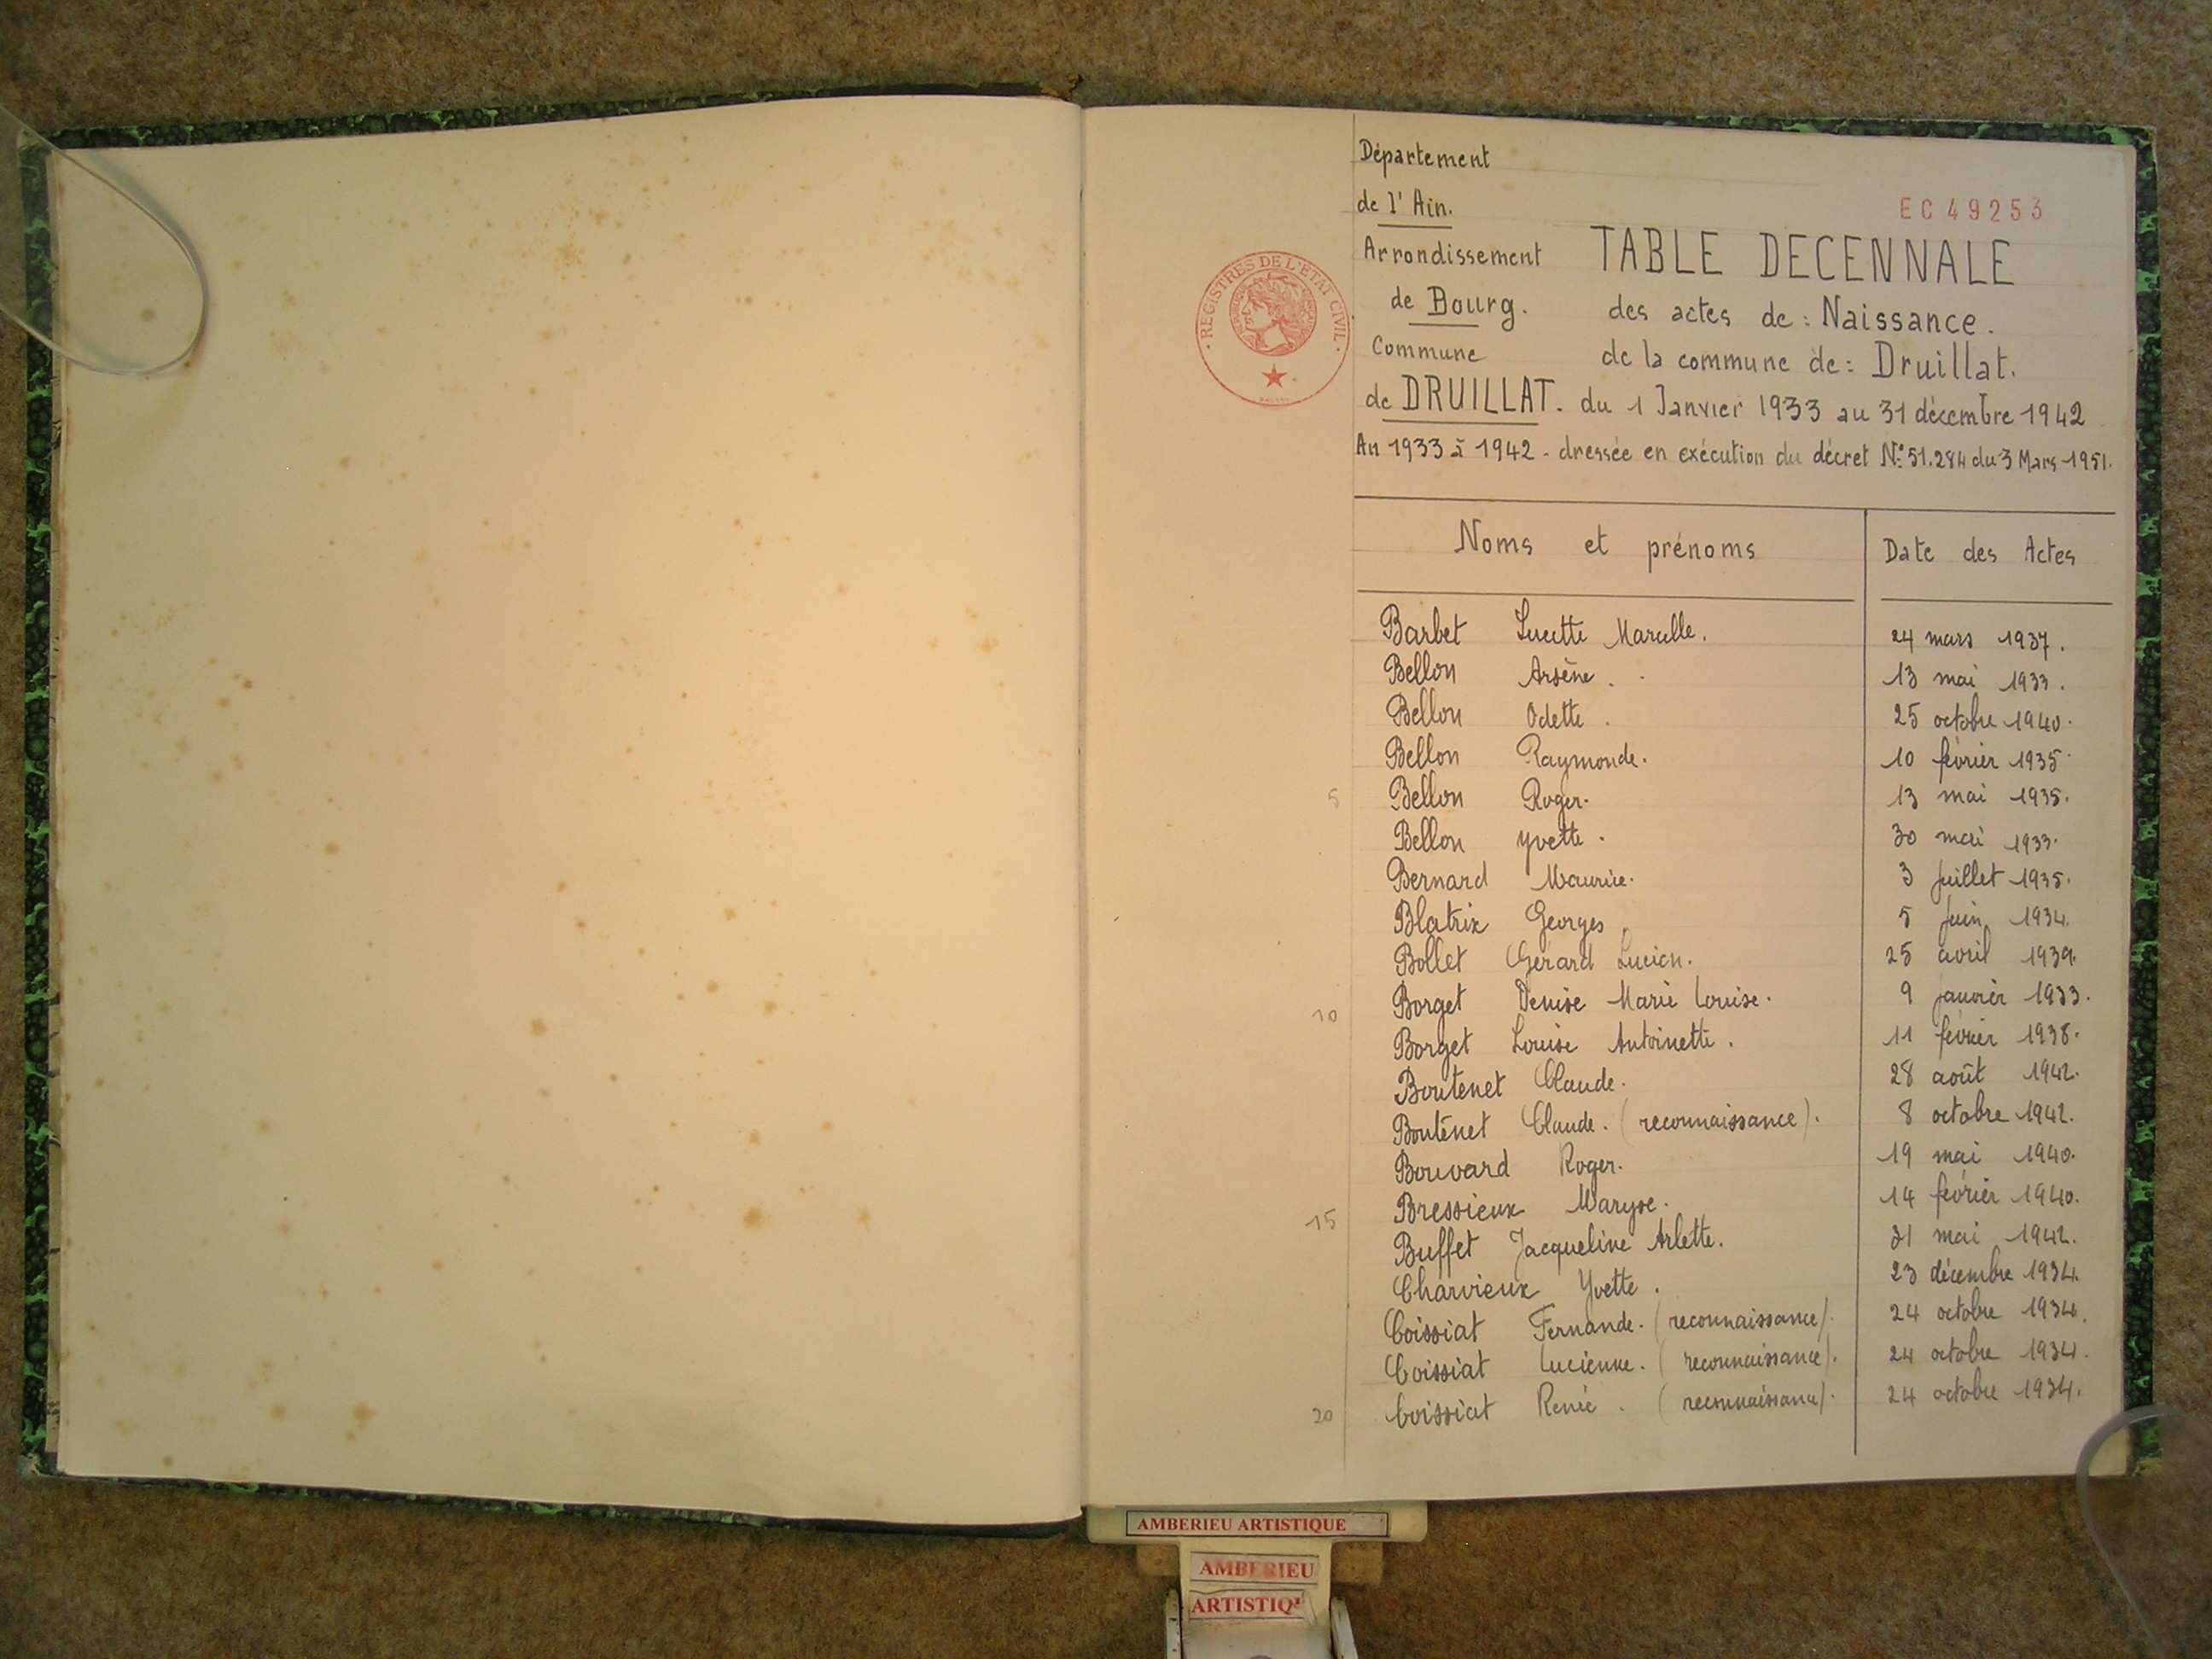 Département
de l'Ain.
EC49253
Arrondissement
TABLE DECENNALE
de Bourg.
des actes de : Naissance.
Commune
de la commune de : Druillat.
de DRUILLAT. du 1 Janvier 1933 au 31 décembre 1942
An 1933 à 1942 - dressée en exécution du décret N° 51.284 du 3 Mars 1951.
REGISTRES DE L'ETAT CIVIL
Noms et prénoms Date des Actes
Barbet Lucette Marcelle. 24 mars 1937.
Bellon Arsène. 13 mai 1933.
Bellon Odette. 25 octobre 1940.
Bellon Raymonde. 10 février 1935.
5 Bellon Roger. 13 mai 1935.
Bellon Yvette. 30 mai 1933.
Bernard Maurice. 3 juillet 1935.
Blatrix Georges. 5 juin 1934.
Bollet Gérard Lucien. 25 avril 1939.
10 Borget Denise Marie Louise. 9 janvier 1933.
Borget Louise Antoinette. 11 février 1938.
Boutenet Claude. 28 août 1942.
Boutenet Claude. (reconnaissance). 8 octobre 1942.
Bouvard Roger. 19 mai 1940.
15 Bressieux Maryse. 14 février 1940.
Buffet Jacqueline Arlette. 31 mai 1942.
Charvieux Yvette. 23 décembre 1934.
Coissiat Fernande. (reconnaissance). 24 octobre 1934.
Coissiat Lucienne. (reconnaissance). 24 octobre 1934.
20 Coissiat Renée. (reconnaissance). 24 octobre 1934.
AMBERIEU ARTISTIQUE
AMBERIEU
ARTISTIQU